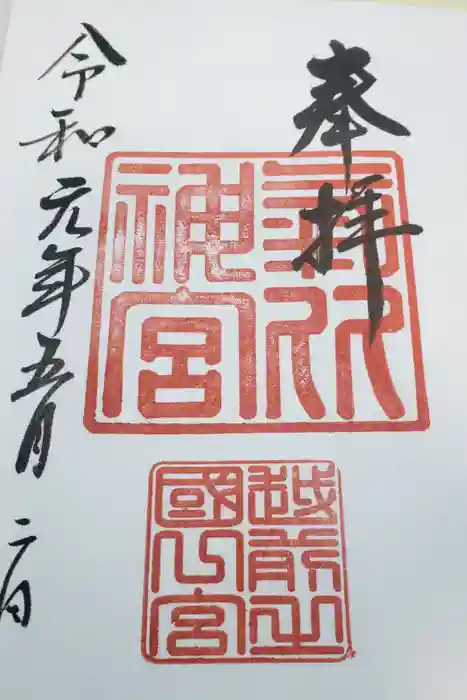 奉拝
氣比
神宮
越前之
國一宮
令和元年五月二日